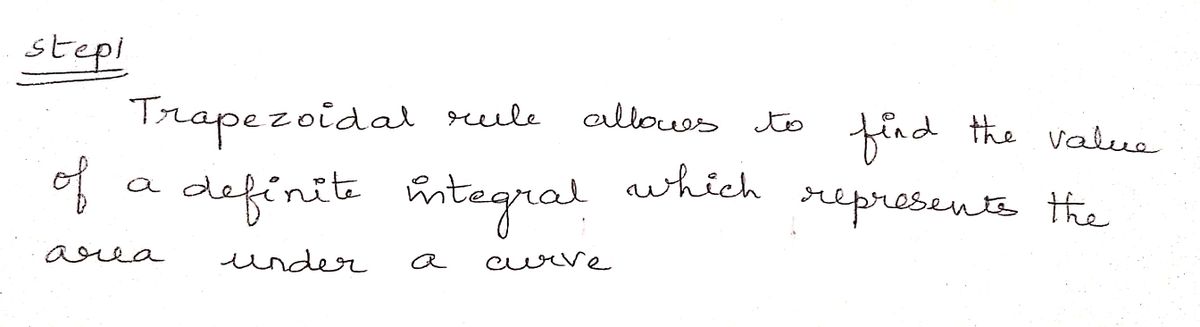 step1
Trapezoidal rule allows to find the value
of a definite integral which represents the
area under a curve